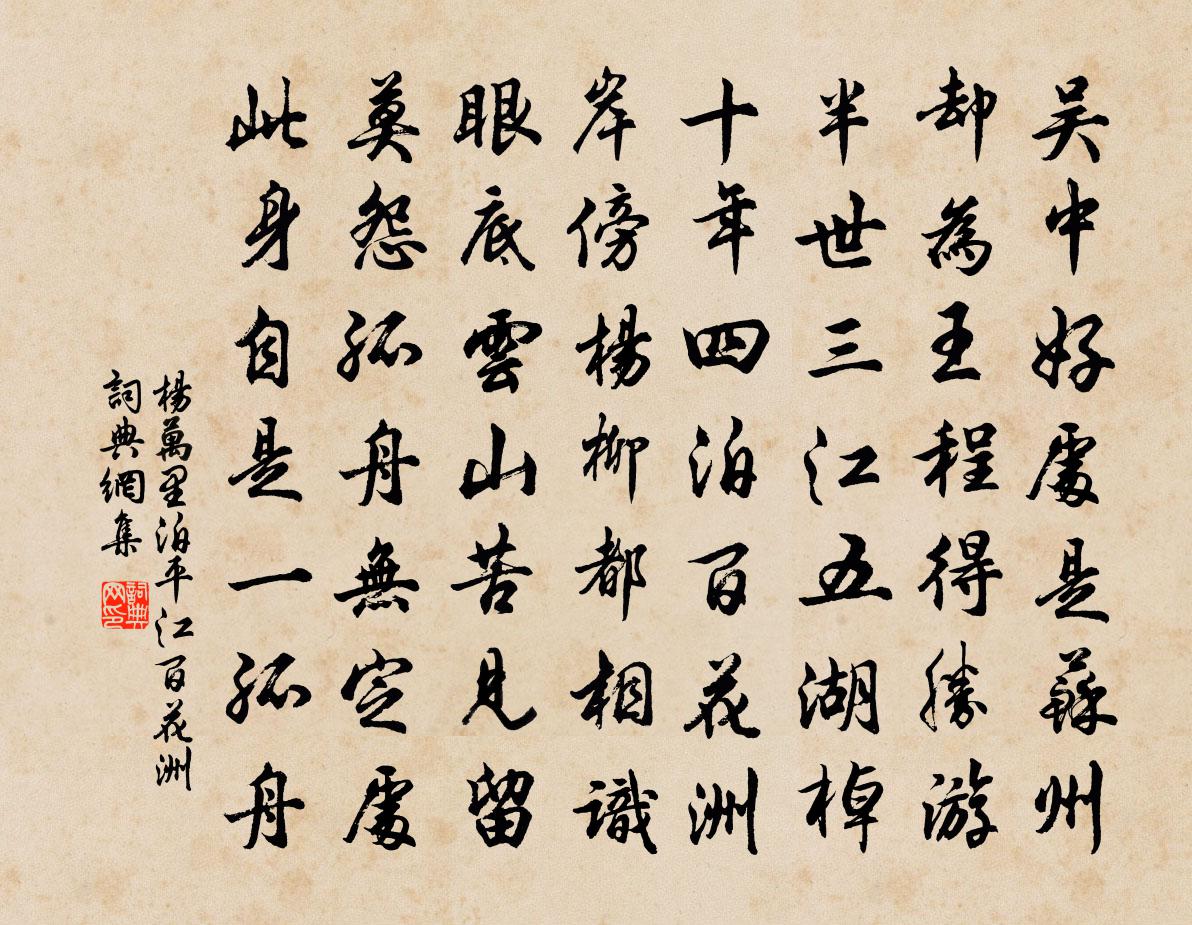 吴中好處是蘇州
却為王程得勝游
半世三江五湖棹
十年四泊百花洲
岸傍楊柳都相識
眼底雲山苦見留
莫怨孤舟無定處
此身自是一孤舟
楊萬里泊平江百花洲
詞典網集
詞典网印